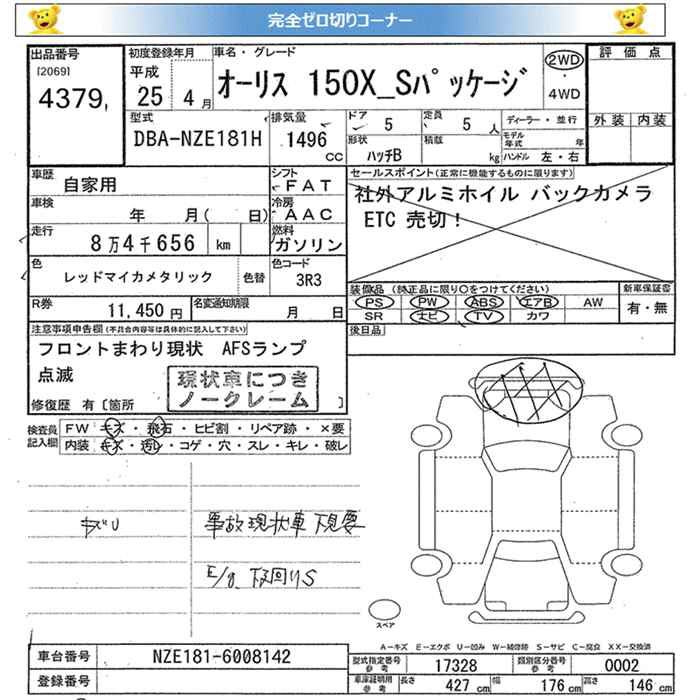 完全ゼロ切りコーナー
出品番号
[2069]
4379,
初度登録年月
平成
25 4月
車名・グレード
オーリス 150X_Sパッケージ
2WD
・
4WD
評価点
外装 内装
型式
DBA-NZE181H
排気量
1496
CC
ドア 5
形状
ハッチB
定員 5 人
積載
kg
ディーラー・並行
モデル年式 年
ハンドル 左・右
車歴
自家用
シフト
FAT
車検
年 月( 日)
冷房
AAC
走行
8万4千656 km
燃料
ガソリン
色
レッドマイカメタリック
色替
色コード
3R3
R券
11,450円
名変通知期限
月 日
セールスポイント(正常に機能するものに限ります)
社外アルミホイル バックカメラ
ETC 売切!
装備品 (純正品に限り○をつけてください)
PS PW ABS エアB AW
SR ナビ TV カワ
新車保証書
有・無
後日品
注意事項申告欄(不具合内容等は具体的に記入して下さい)
フロントまわり現状 AFSランプ
点滅
現状車につき
ノークレーム
修復歴 有[箇所 ]
検査員
記入欄
FW キズ・飛石・ヒビ割・リペア跡・×要
内装 キズ・汚レ・コゲ・穴・スレ・キレ・破レ
事故現状車 下見要
E/g. 下回りS
スペア
A-キズ E-エクボ U-凹み W-補修跡 S-サビ C-腐食 XX-交換済
車台番号
NZE181-6008142
登録番号
型式指定番号
参考
17328
類別区分番号
参考
0002
車庫証明用
参考
長さ 427 cm
幅 176 cm
高さ 146 cm